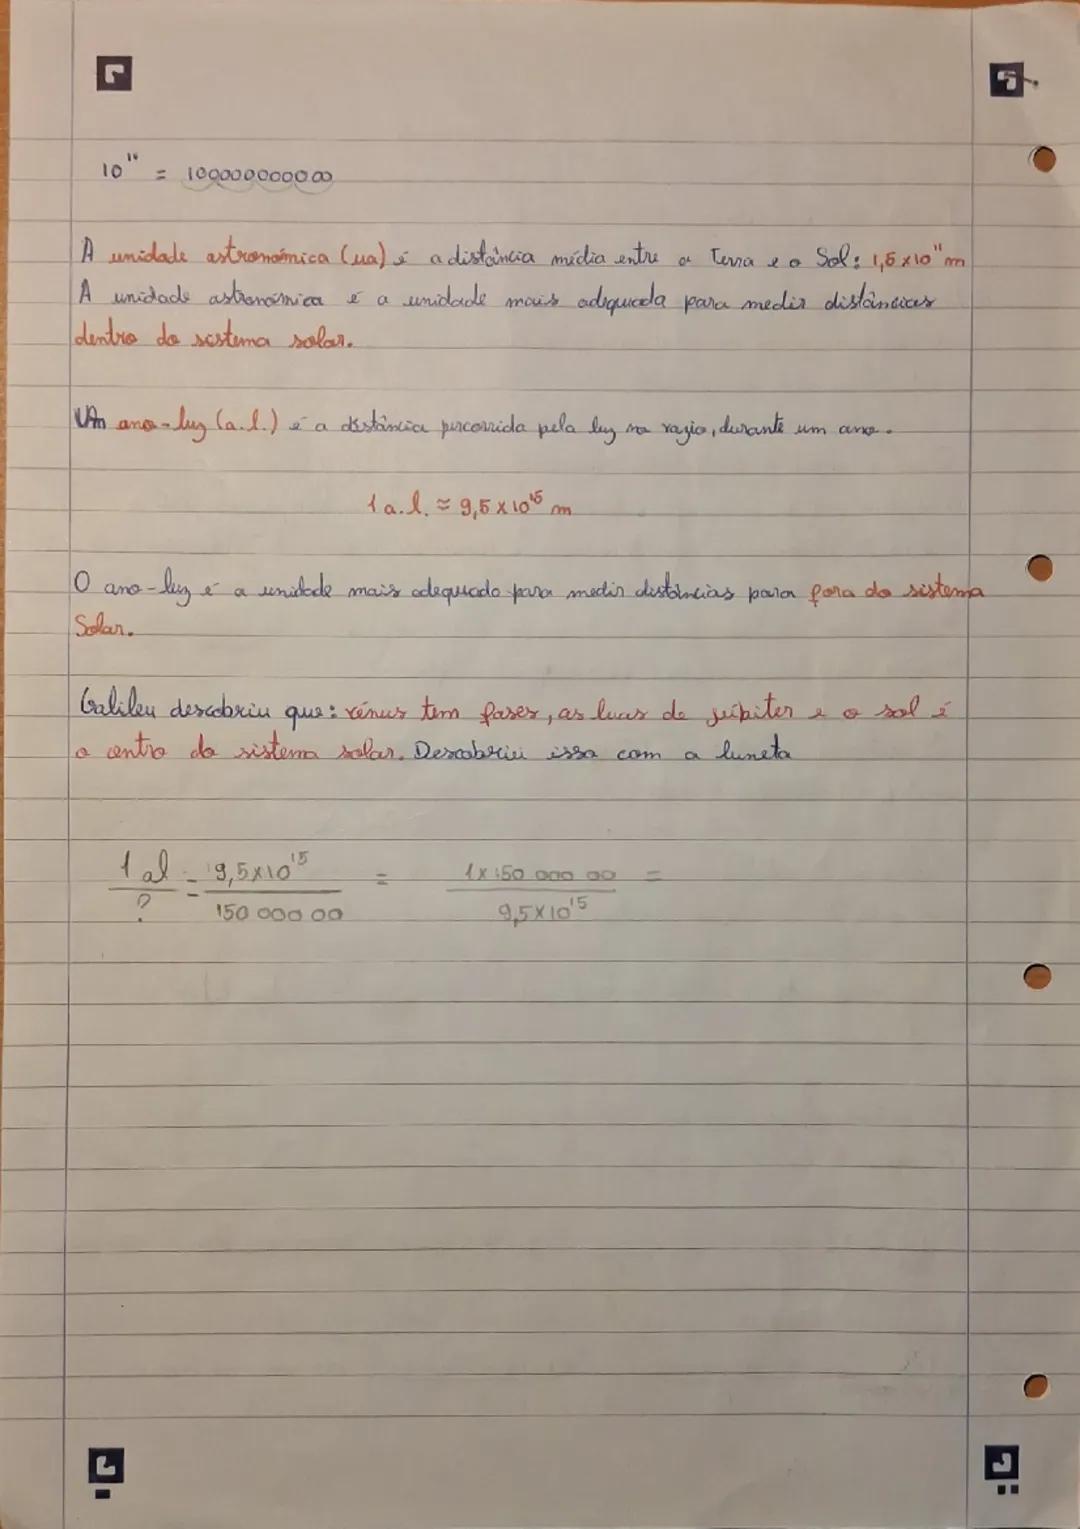 10¹¹ = 100000000000
A unidade astronómica (ua) é a distância média entre a Terra e o Sol: 1,5 x 10¹¹ m
A unidade astronómica é a unidade mais adequada para medir distâncias
dentro do sistema solar.
Um ano-luz (a.l.) é a distância percorrida pela luz no vazio, durante um ano.
1 a.l. ≈ 9,5 x 10¹⁵ m
O ano-luz é a unidade mais adequado para medir distâncias para fora do sistema
Solar.
Galileu descobriu que: vénus tem fases, as luas de júpiter e o sol é
o centro do sistema solar. Descobriu isso com a luneta
1 al = 9,5x10¹⁵ = 1 x 150 000 00 =
? 150 000 00 9,5x10¹⁵